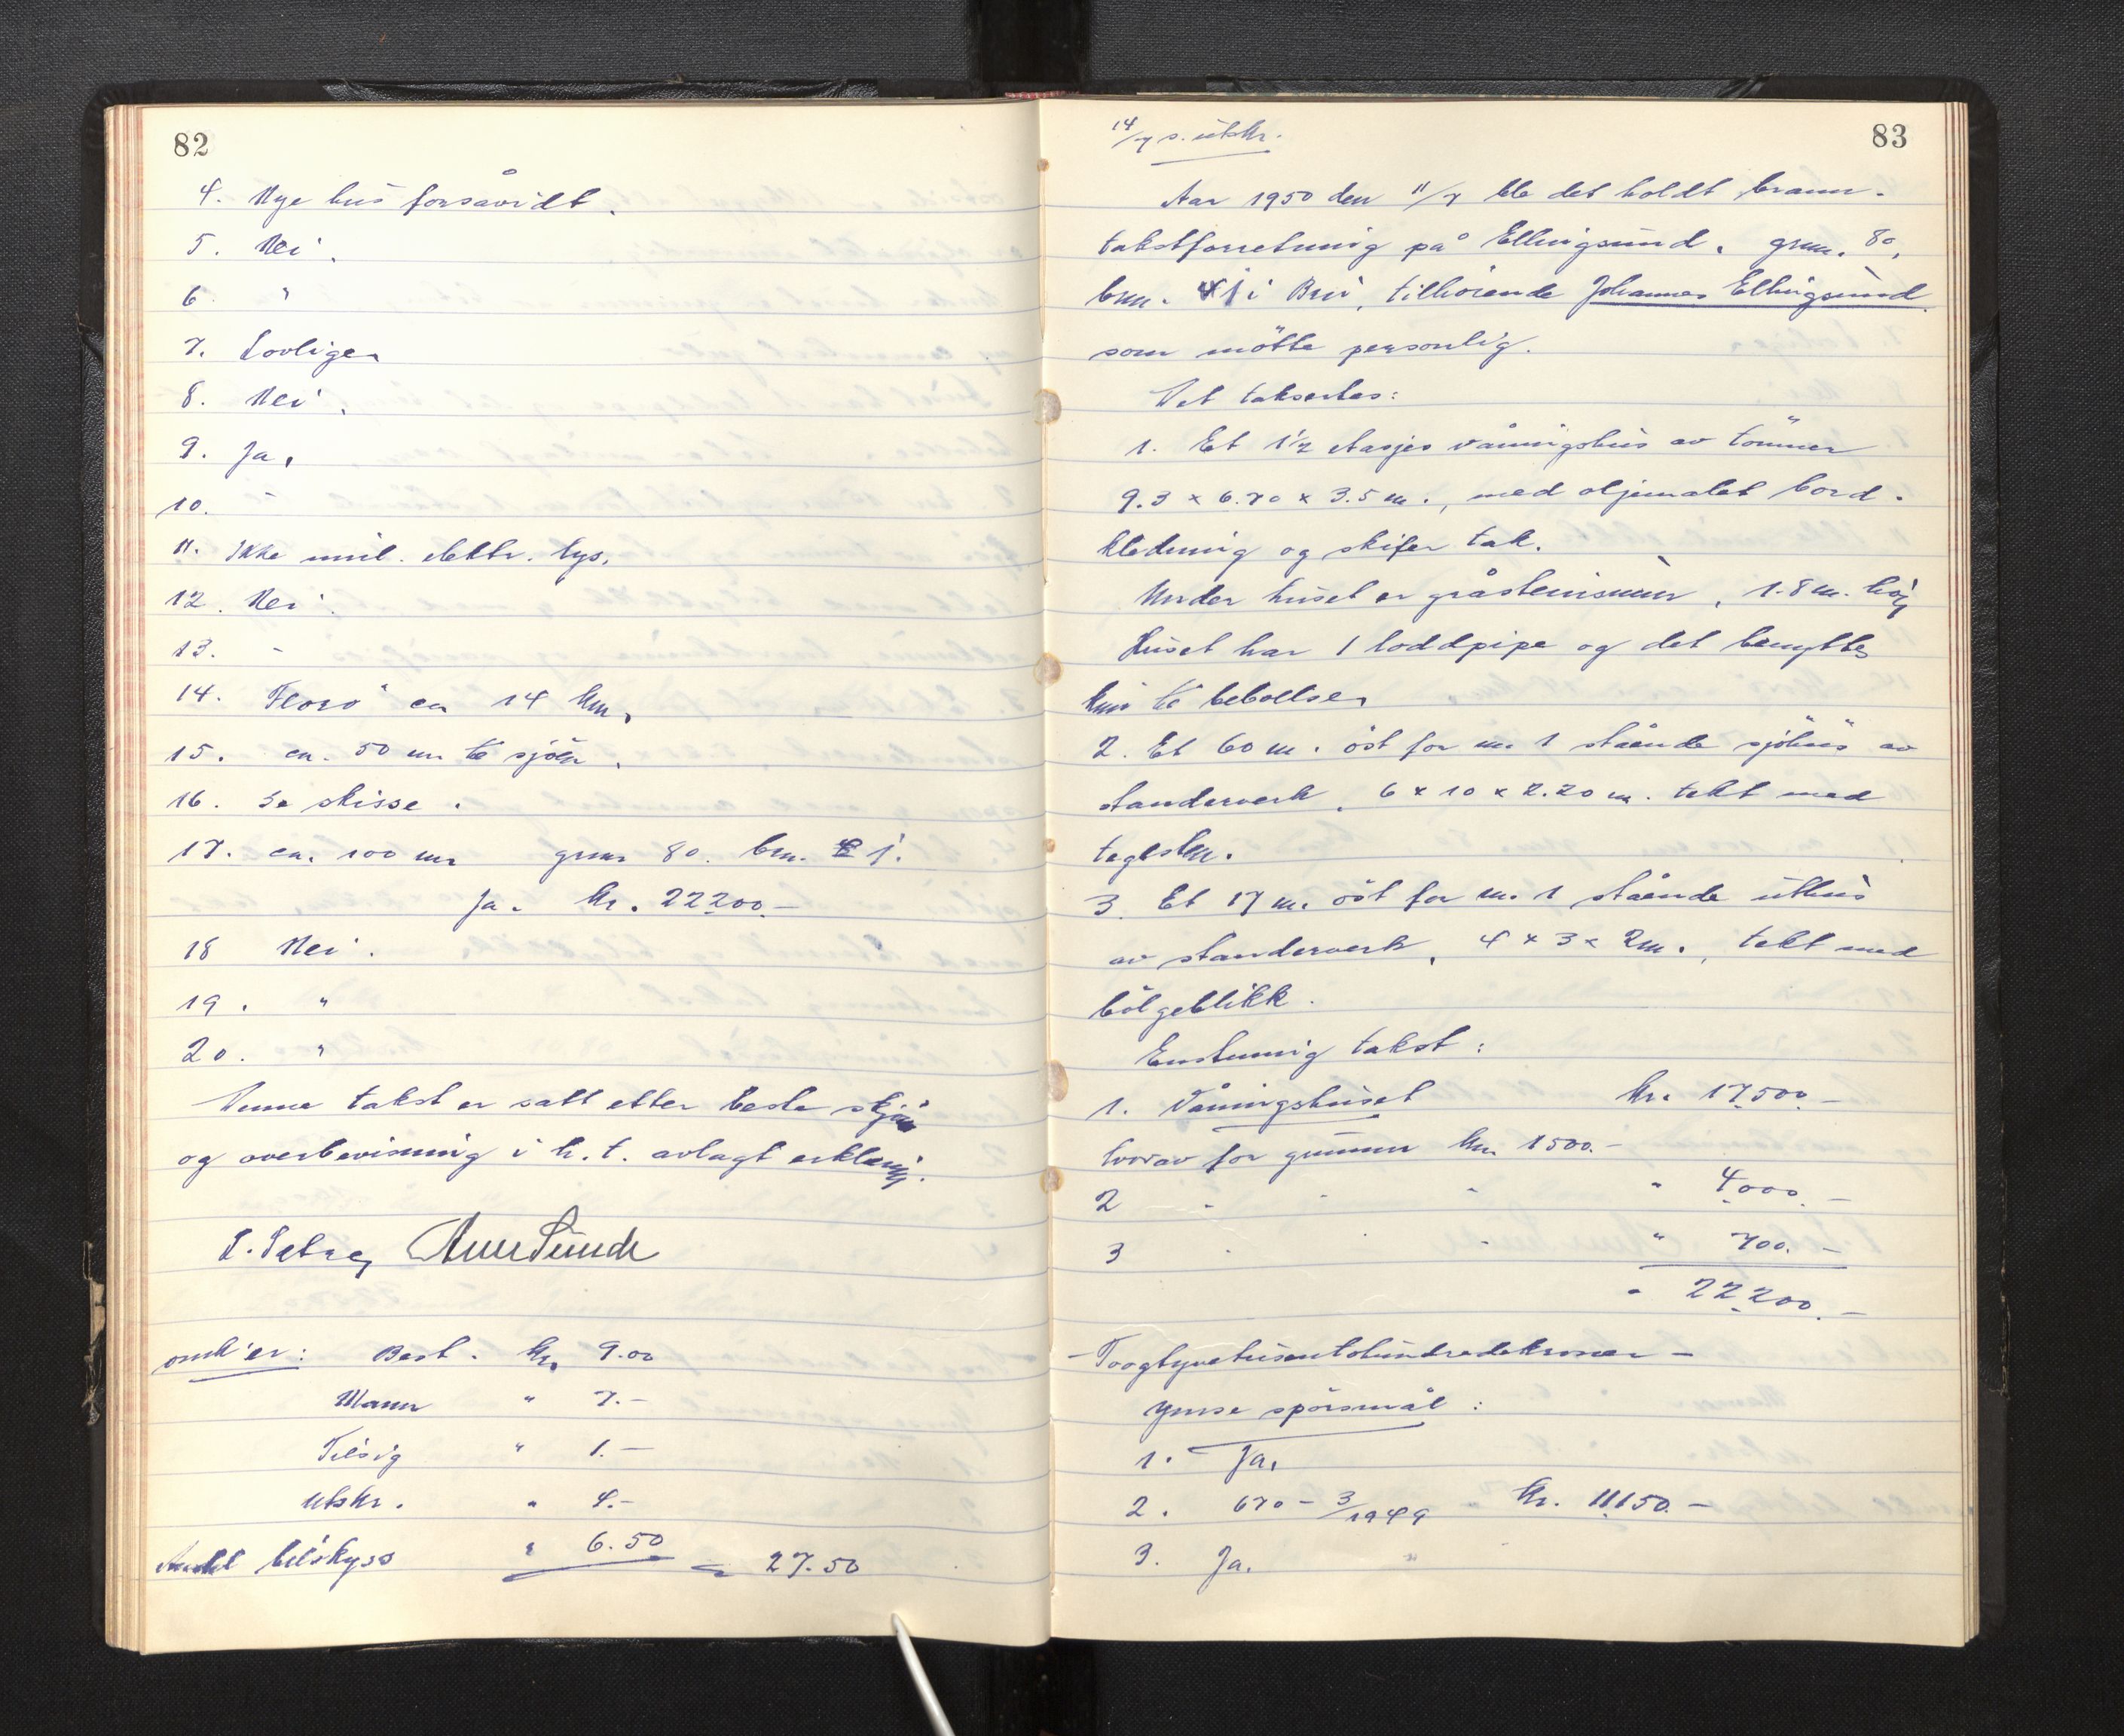 82
4. Nye hus forsåvidt.
5. Nei.
6 "
7. Lovlige.
8. Nei.
9. Ja.
10. -
11. Ikke innl. elektr. lys.
12. Nei.
13. -
14. Florö ca 14 km.
15. ca. 50 m til sjöen.
16. Se skisse.
17. ca. 100 m gnr 80. bnr. 1.
Ja. kr. 22200.-
18 Nei.
19. "
20. "
Denne takst er satt etter beste skjön
og overbevisning i h.t. avlagt erklæring.
omk'er: Best. kr. 9.00
Mann " 7.-
Tilsig " 1.-
Utskr. " 4.-
Andel bilskyss " 6.50 = 27.50
83
14/7 s. utskr.
Aar 1950 den 11/7 ble det holdt brann-
takstforretning på Ellingsund. gnr. 80,
bnr. 1 i Bru, tilhörende Johannes Ellingsund
som mötte personlig.
Det taksertes:
1. Et 1½ etasjes våningshus av tömmer
9.3 x 6.70 x 3.5 m., med oljemalet bord-
kledning og skifer tak.
Under huset er gråsteinsmur, 1.8 m. höy
Huset har 1 loddpipe og det benyttes
kun til beboelse.
2. Et 60 m. öst for nr. 1 stående sjöhus av
standerverk, 6 x 10 x 2.20 m. tekt med
teglsten.
3. Et 17 m. öst for nr. 1 stående uthus
av standerverk, 4 x 3 x 2 m., tekt med
bölgeblikk.
Enstemmig takst:
1. Våningshuset kr. 17500.-
hvorav for grunnmur kr. 1500.-
2 " " " " 4000.-
3 " " " 700.-
" 22200.-
- Toogtyvetusentohundredekroner -
Ymse spörsmål:
1. Ja.
2. 670 - 3/1949 kr. 11150.-
3. Ja.